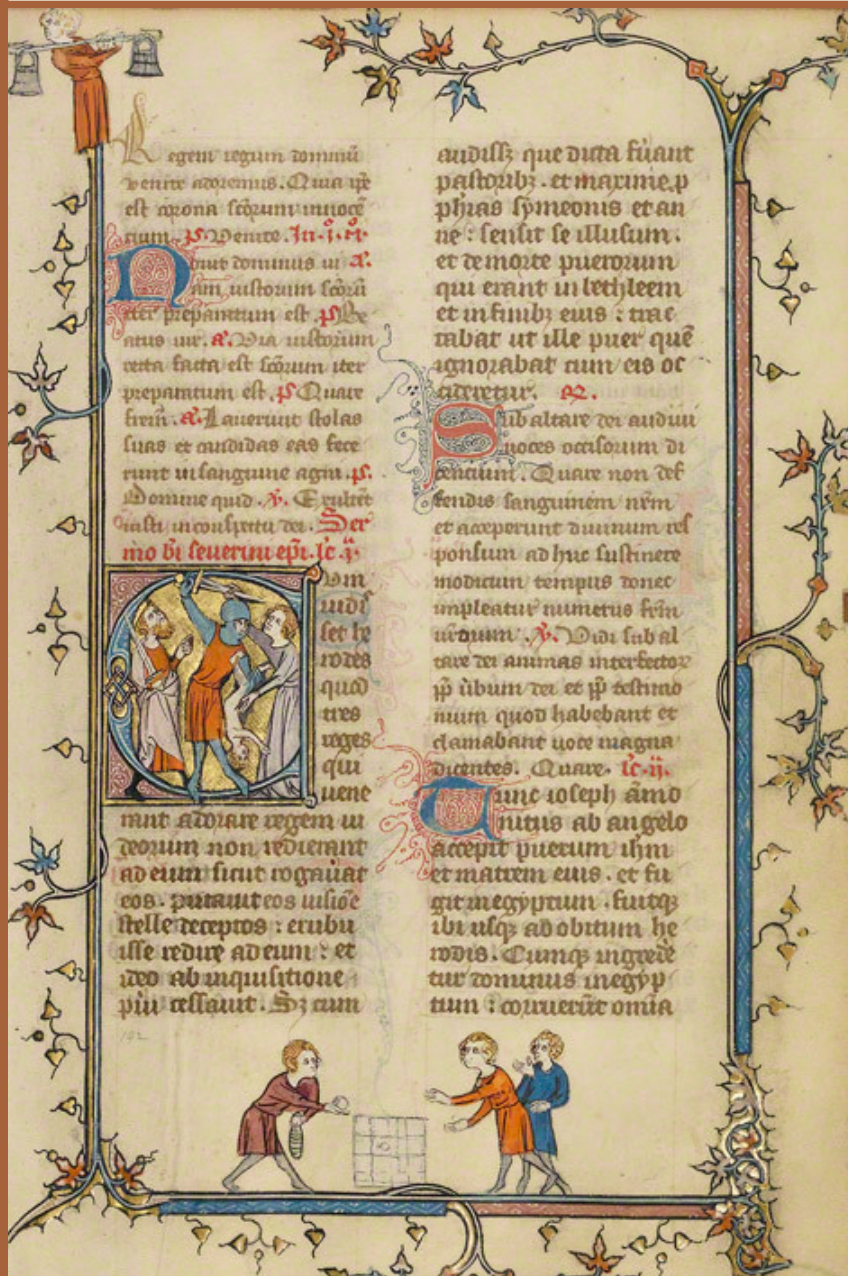 Regem regum dominū
venite adoremus. Quia ip̄e
est corona scōrum innocē
cium. ps. Venite. In .i. N̊.
Nouit dominus ui a.
am iustorum scōrū
iter preparatum est. ps Be
atus uir. a. Via iustorum
recta facta est scōrum iter
preparatum est. ps Quare
frem̄. a. Lauerunt stolas
suas et candidas eas fece
runt in sanguine agni. ps.
Domine quid. v. Exultēt
iusti in conspectu dei. Ser
mo bi seuerini epī. lc. i.
Cum
uidis
set he
rodes
quod
tres
reges
qui
uene
rant adorare regem iu
deorum non redierant
ad eum sicut rogauāt
eos. putauit eos uisiōe
stelle deceptos : erubu
isse redire ad eum : et
ideo ab inquisitione
p̄ui cessauit. Sꝫ cum
audissꝫ que dicta fūant
pastoribꝫ. et maxime p
ph̄ias symeonis et an
ne : sensit se illusum.
et de morte puerorum
qui erant in bethleem
et in finibꝫ eius : trac
tabat ut ille puer quē
ignorabat cum eis oc
cideretur. R.
Sub altare dei audiui
uoces occisorum di
cencium. Quare non def
fendis sanguinem nr̄m
et acceperunt diuinum res
ponsum adhuc sustinete
modicum tempus donec
impleatur numerus fr̄m
ur̄orum. v. Vidi sub al
tare dei animas interfectoꝝ
ꝓp̄ ūbum dei et ꝓp̄ testimo
nium quod habebant et
clamabant uoce magna
dicentes. Quare. lc. ii.
Tunc ioseph āmo
nitus ab angelo
accepit puerum ihm
et matrem eius. et fu
git in egyptum. fuitqꝫ
ibi usqꝫ ad obitum he
rodis. Cumqꝫ ingredē
tur dominus in egyp
tum : corruerūt omīa
192